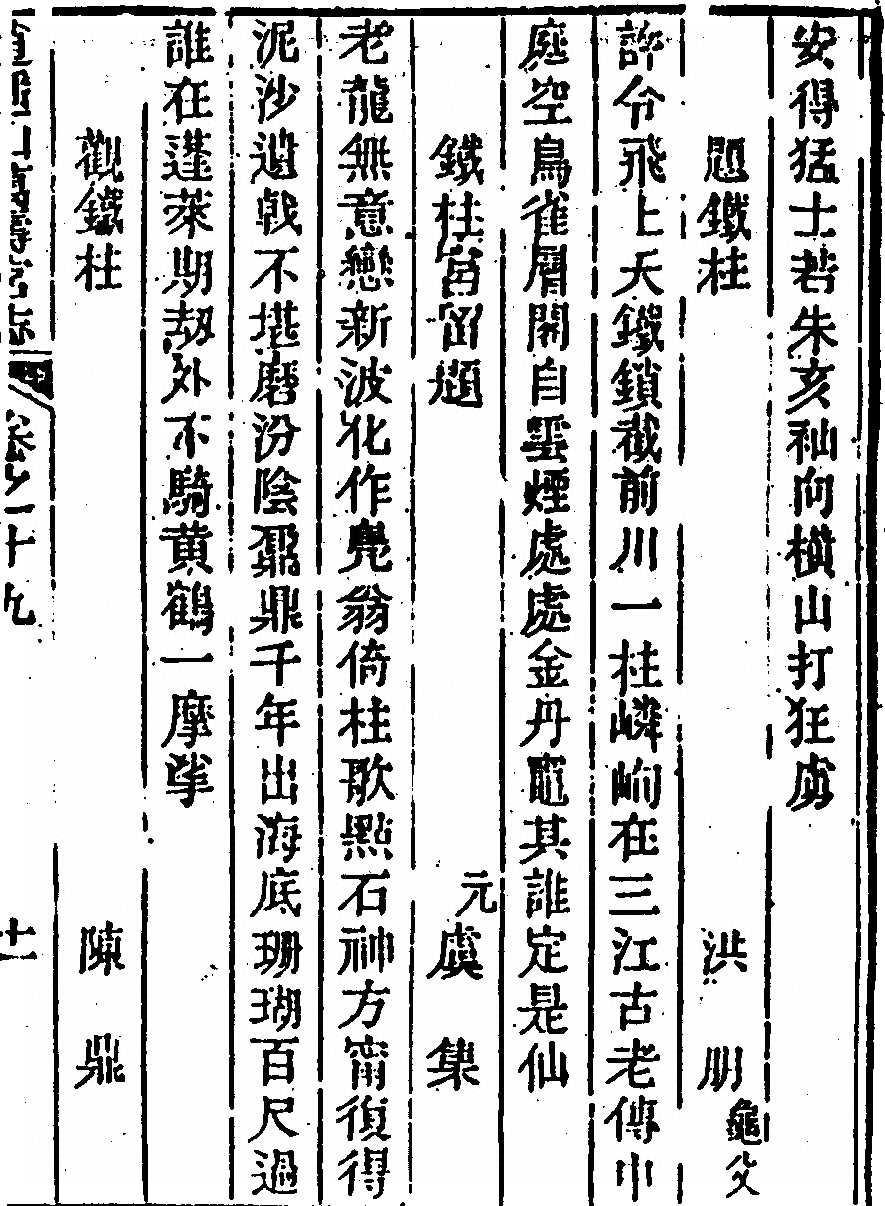 安得猛士若朱亥袖向橫山打狂虜
題鐵柱 洪 朋 龜父
許令飛上天鐵鎖截前川一柱嶙峋在三江古老傳中
庭空鳥雀屑閑自雲煙處處金丹竈其誰定是仙
鐵柱宮留題 元虞 集
老龍無意戀新波化作鳧翁倚柱歌點石神方甯復得
泥沙過戟不堪磨汾陰鼐鼎千年出海底珊瑚百尺過
誰在蓬萊期劫外不騎黄鶴一摩挲
觀鐵柱 陳 鼎
逍遙山萬壽宮志 卷之十九 十一